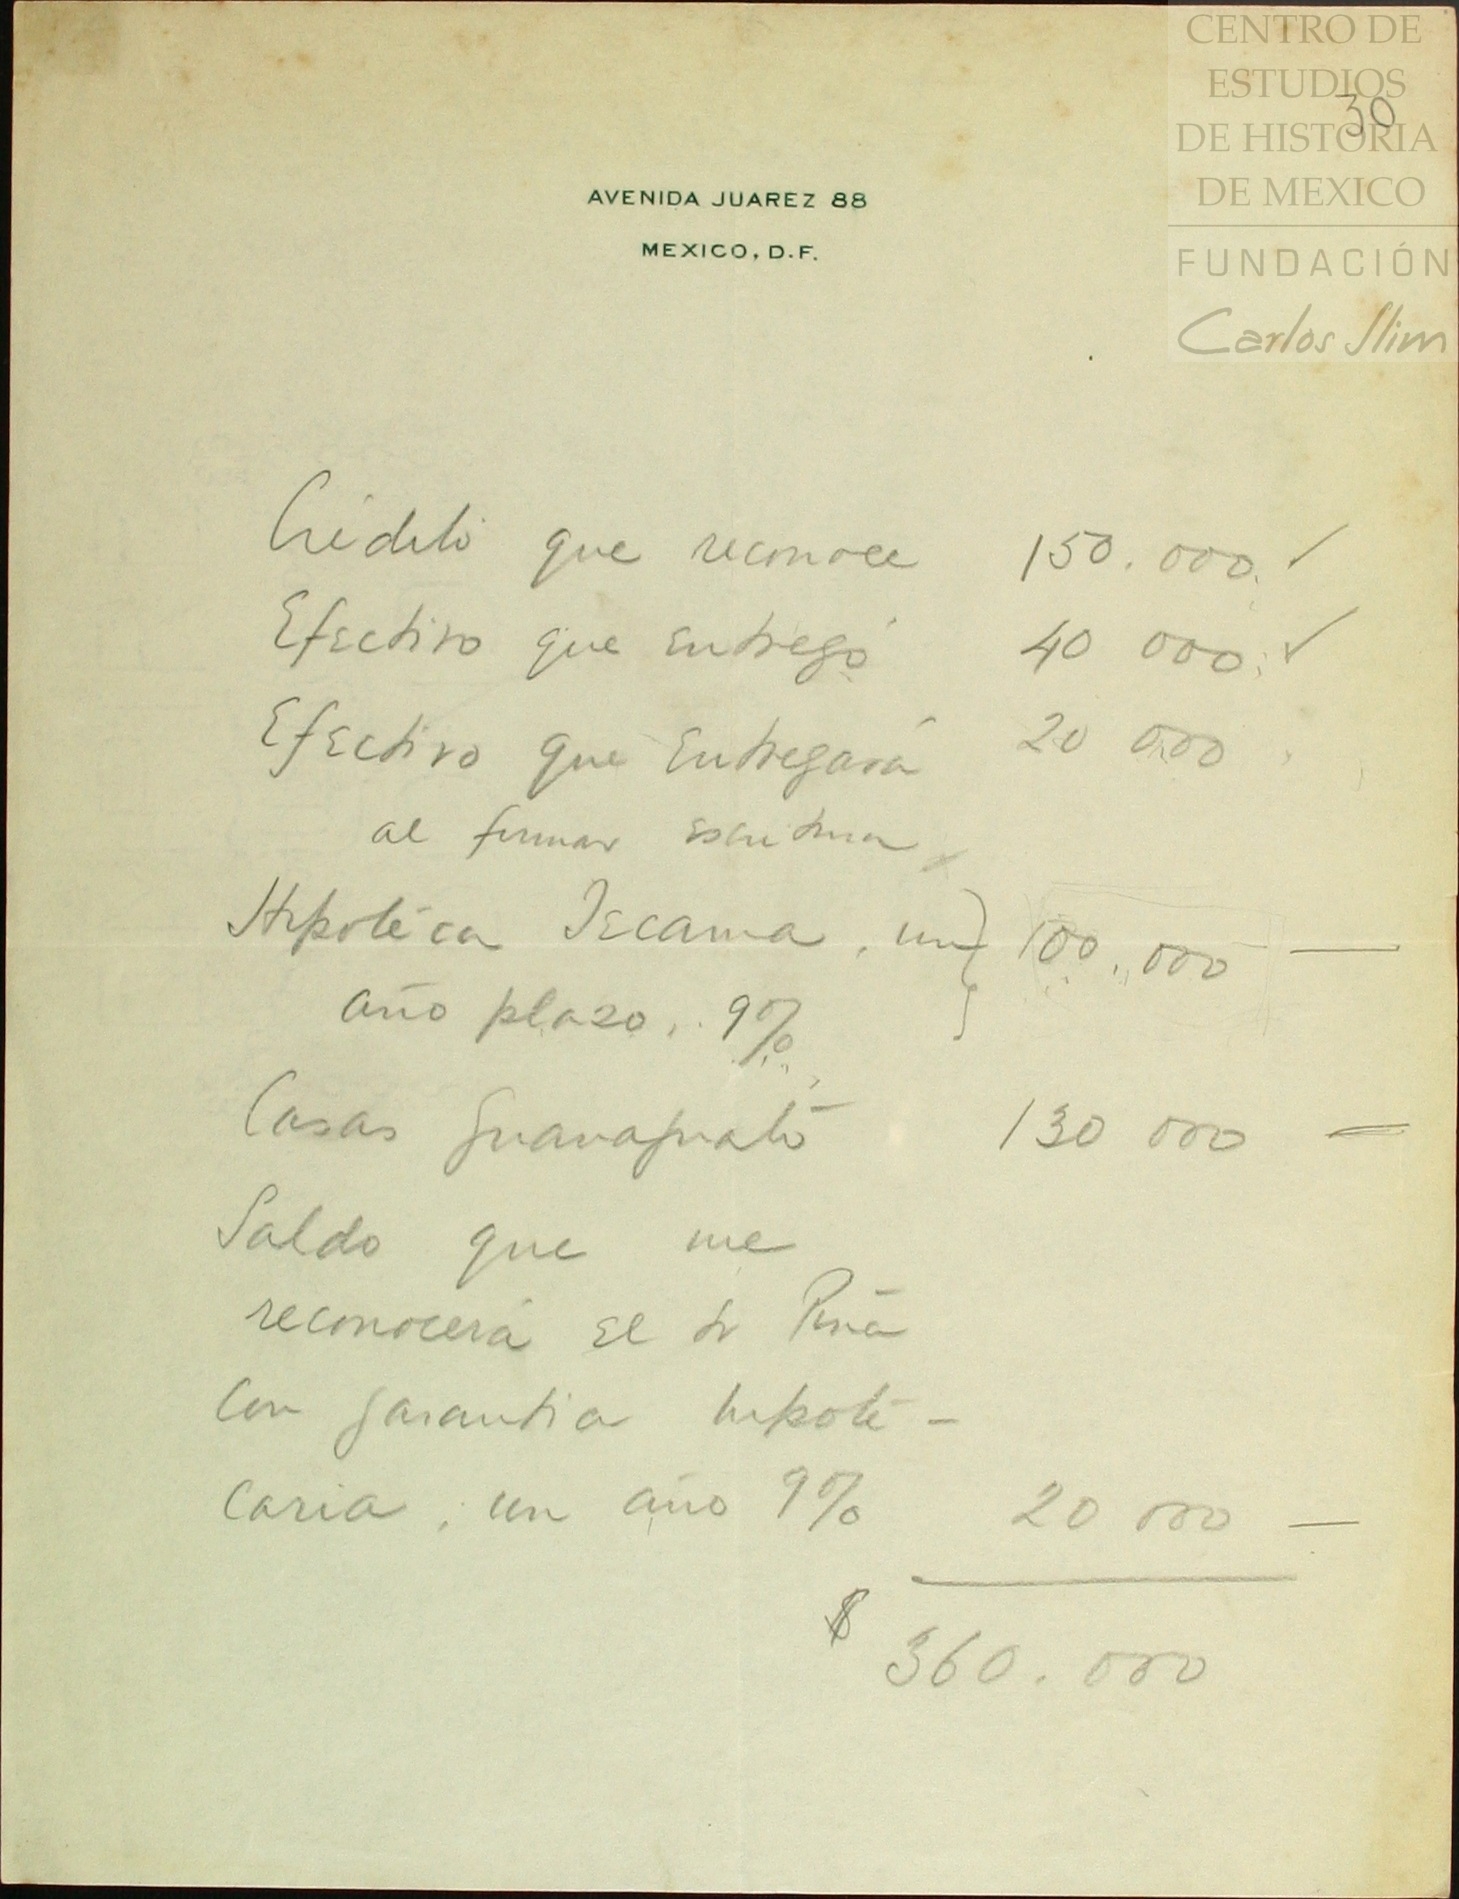 CENTRO DE
ESTUDIOS
DE HISTORIA
DE MEXICO
FUNDACIÓN
Carlos Slim
30
AVENIDA JUAREZ 88
MEXICO, D.F.
Crédito que reconoce 150.000. ✓
Efectivo que entregó 40 000. ✓
Efectivo que entregará 20 000
al firmar escritura
Hipoteca Tecama, un } 100.000 —
año plazo, 9%
Casas Guanajuato 130 000 —
Saldo que me
reconocerá el Sr Piña
con garantia hipote-
caria, un año 9% 20 000 —
$ 360.000